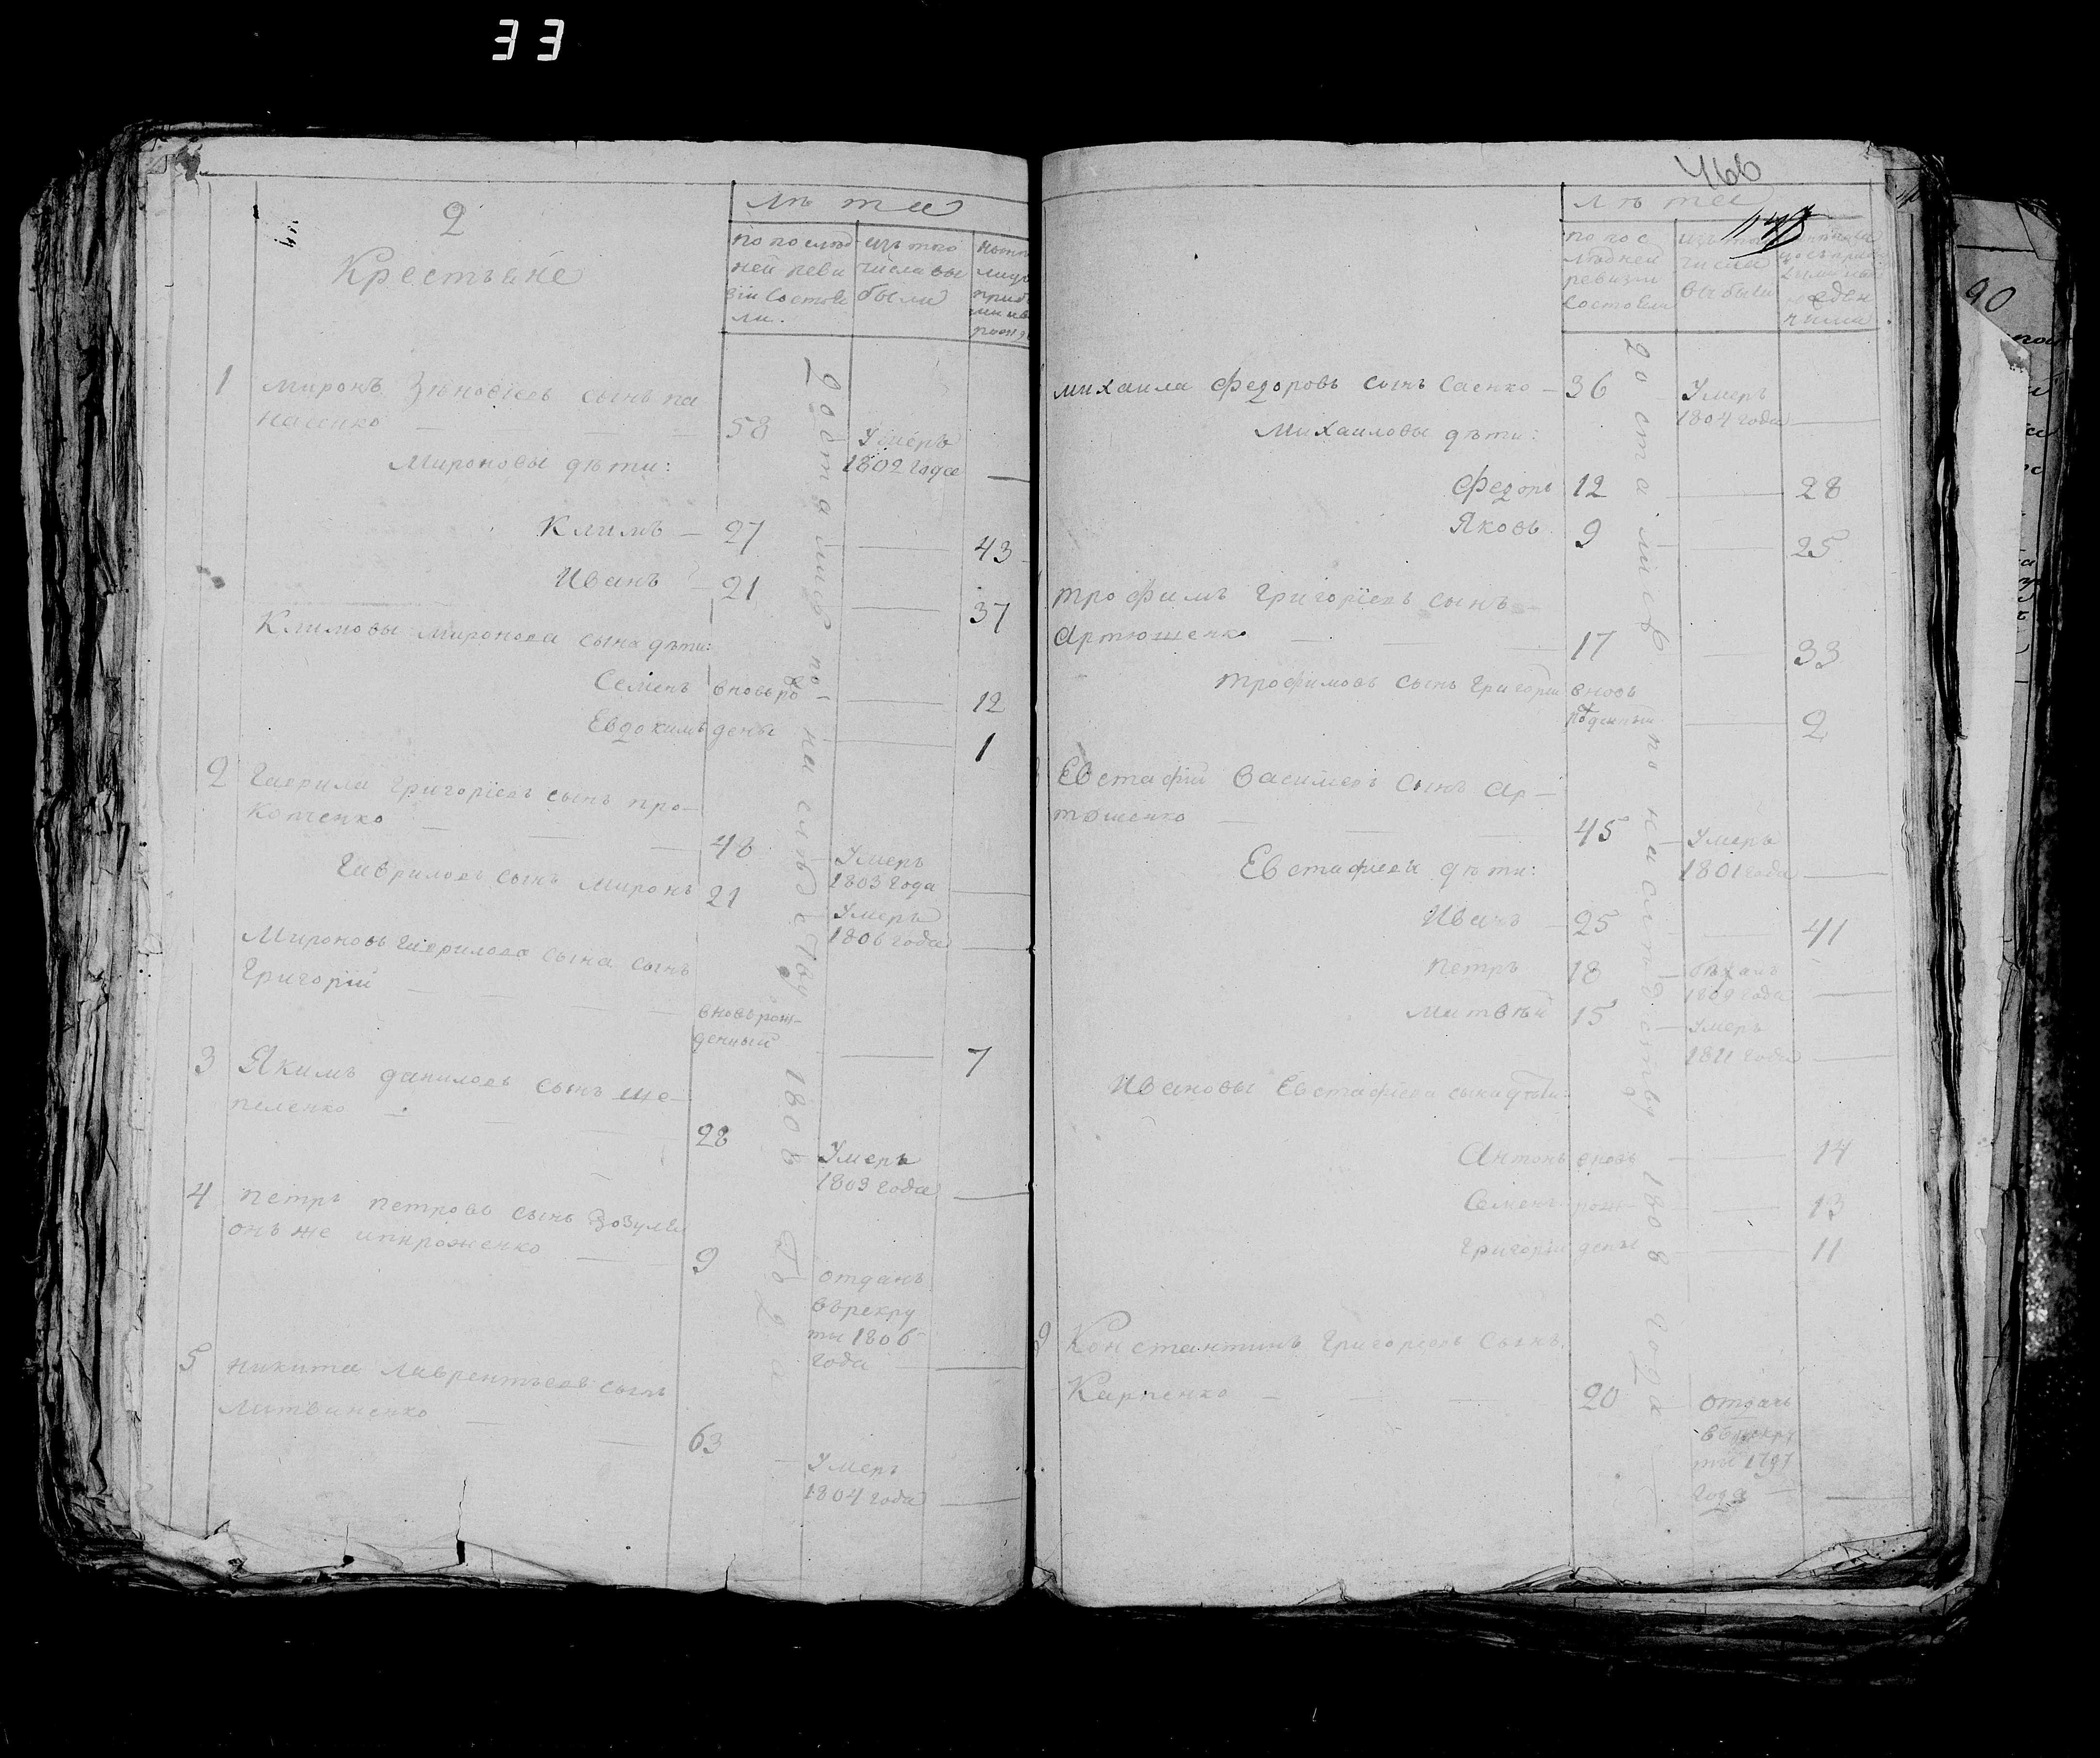 33
2
Крестьяне
лѣта
по послѣд
ней реви
зіи состоя
ли.
изъ того
числа вы
были
1
миронъ Зѣновіевъ сынъ па
насенко 58 Умеръ
1802 года
Мироновы дѣти:
Климъ 27 43
Иванъ 21 37
Климовы миронова сына дѣти:
Семенъ вновь ро 12
Евдокимъ дены 1
2 Гаврила Григоріевъ сынъ про-
копченко 48 Умеръ
1803 года
Гавриловъ сынъ Миронъ 21 Умеръ
1806 года
Мироновъ Гаврилова сына сынъ
Григорій вновь рож-
денный 7
3 Якимъ даниловъ сынъ ше-
пеленко 28 Умеръ
1809 года
4 петръ петровъ сынъ Зозуля
онъ же 9 отданъ
въ рекру
ты 1806
года
5 никита лаврентьевъ сынъ
литвиненко 63 Умеръ
1804 года
доставленъ по наслѣдству 1808 года
466
лѣта
по пос
лѣдней
ревизіи
состояли
изъ того
числа
выбыли
михаила федоровъ сынъ саенко 36 Умеръ
1804 года
Михаиловы дѣти:
федоръ 12 28
Яковъ 9 25
трофимъ григоріевъ сынъ
артюшенко 17 33
трофимовъ сынъ григорій вновь
рожденный 2
Евстафій василіевъ сынъ ар-
тюшенко 45 Умеръ
1801 года
Евстафіевы дѣти:
Иванъ 25 41
петръ 18 бѣжалъ
1809 года
матвѣй 15 Умеръ
1811 года
Ивановы Евстафіева сына дѣти:
Антонъ вновь 14
Семенъ рож- 13
григорій дены 11
9 Константинъ григоріевъ сынъ
Карпенко 20 отданъ
въ рекру
ты 1797
года
90